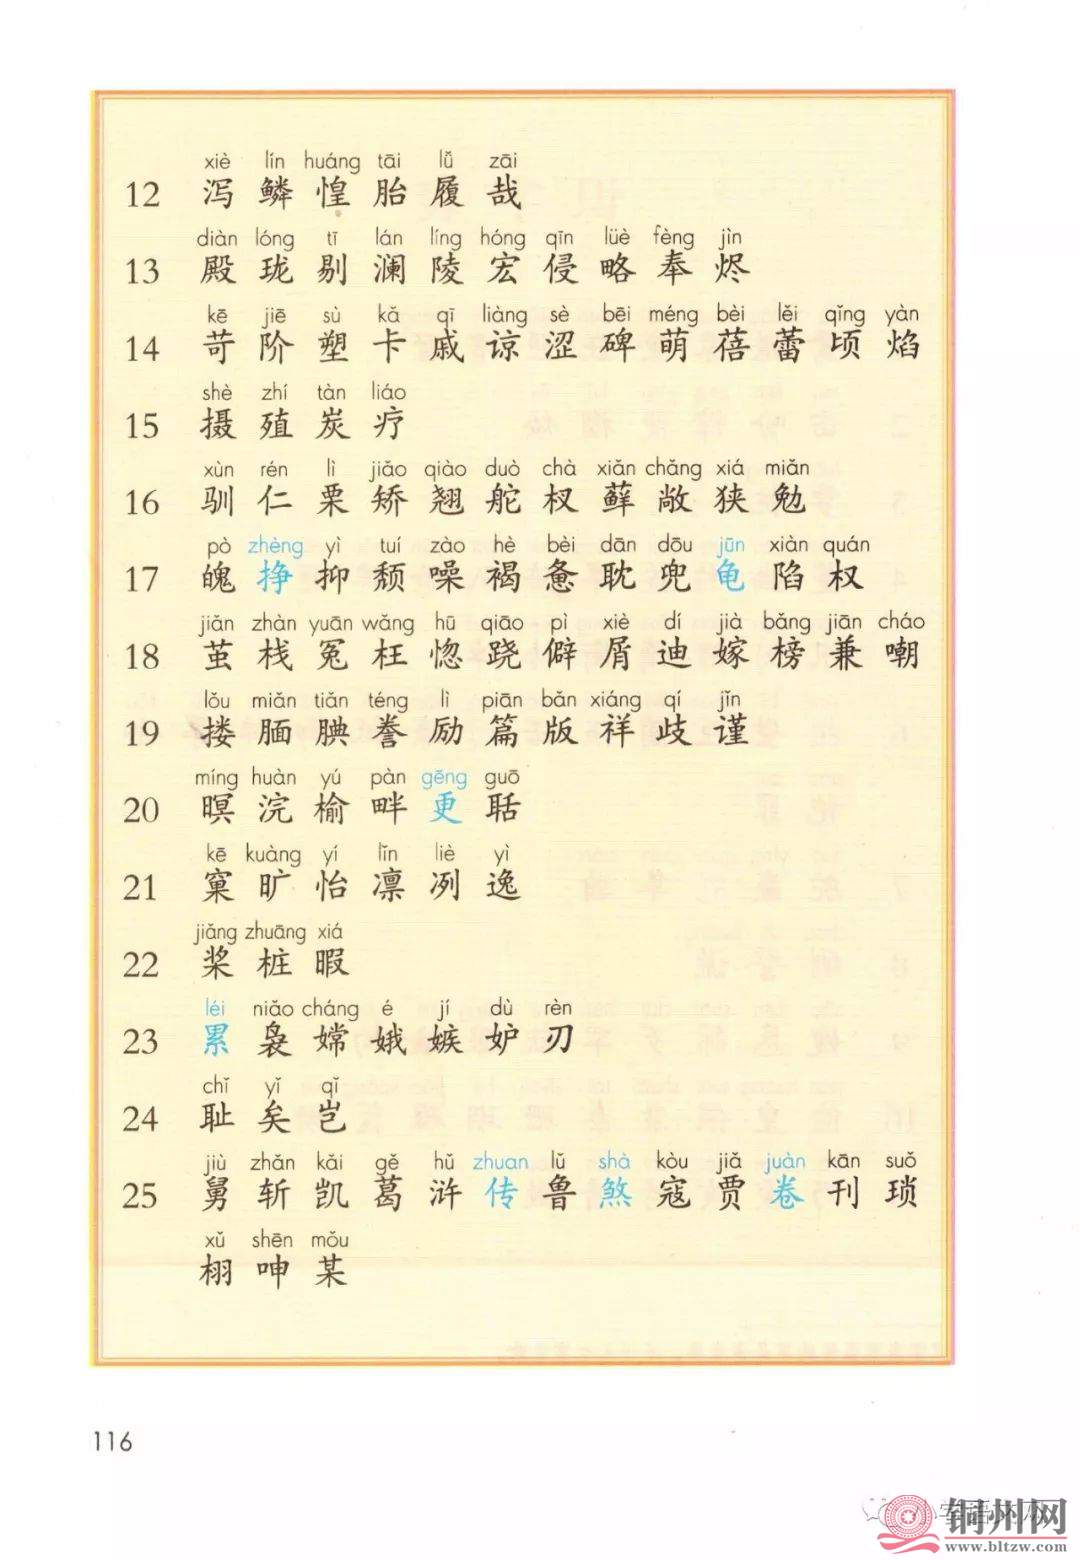 xiè lín huáng tāi lǚ zāi
12 泻 鳞 惶 胎 履 哉
diàn lóng tī lán líng hóng qīn lüè fèng jìn
13 殿 珑 剔 澜 陵 宏 侵 略 奉 烬
kē jiē sù kǎ qī liàng sè bēi méng bèi lěi qǐng yàn
14 苛 阶 塑 卡 戚 谅 涩 碑 萌 蓓 蕾 顷 焰
shè zhí tàn liáo
15 摄 殖 炭 疗
xùn rén lì jiǎo qiào duò chà xiǎn chǎng xiá miǎn
16 驯 仁 栗 矫 翘 舵 杈 藓 敞 狭 勉
pò zhèng yì tuí zào hè bèi dān dōu jūn xiàn quán
17 魄 挣 抑 颓 噪 褐 惫 耽 兜 龟 陷 权
jiǎn zhàn yuān wǎng hū qiāo pì xiè dí jià bǎng jiān cháo
18 茧 栈 冤 枉 惚 跷 僻 屑 迪 嫁 榜 兼 嘲
lǒu miǎn tiǎn téng lì piān bǎn xiáng qí jǐn
19 搂 腼 腆 誊 励 篇 版 祥 歧 谨
míng huàn yú pàn gēng guō
20 暝 浣 榆 畔 更 聒
kē kuàng yí lǐn liè yì
21 窠 旷 怡 凛 冽 逸
jiǎng zhuāng xiá
22 桨 桩 暇
léi niǎo cháng é jí dù rèn
23 累 袅 嫦 娥 嫉 妒 刃
chǐ yǐ qǐ
24 耻 矣 岂
jiù zhǎn kǎi gě hǔ zhuan lǔ shà kòu jiǎ juàn kān suǒ
25 舅 斩 凯 葛 浒 传 鲁 煞 寇 贾 卷 刊 琐
xǔ shēn mǒu
栩 呻 某
116
铜州网
www.bltzw.com